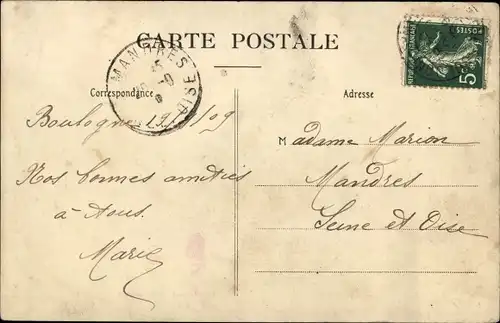 CARTE POSTALE
Correspondance
Adresse
MANDRES
OISE
POSTES
5
Boulogne 09
Nos bonnes amitiés
à tous.
Marie
Madame Marion
Mandres
Seine et Oise